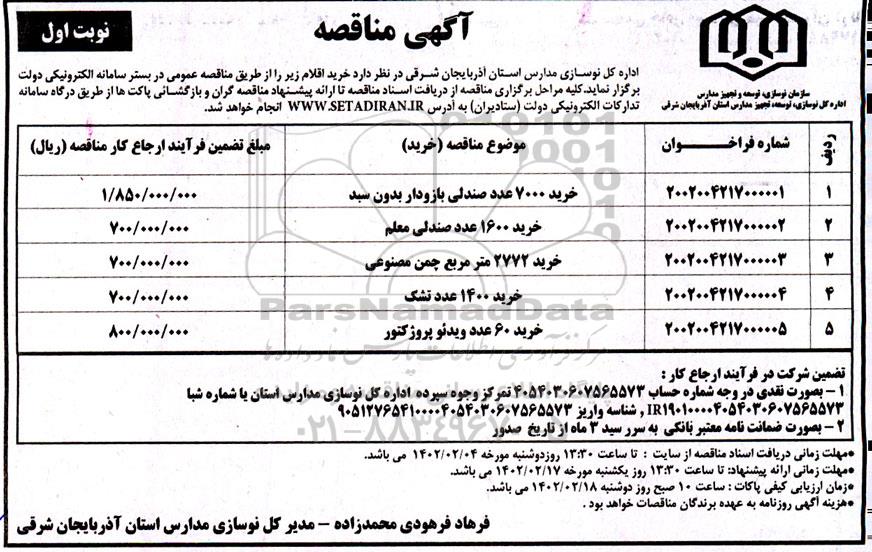 آگهی مناقصه
نوبت اول
سازمان نوسازی، توسعه و تجهیز مدارس
اداره کل نوسازی، توسعه، تجهیز مدارس استان آذربایجان شرقی
اداره کل نوسازی مدارس استان آذربایجان شرقی در نظر دارد خرید اقلام زیر را از طریق مناقصه عمومی در بستر سامانه الکترونیکی دولت
برگزار نماید.کلیه مراحل برگزاری مناقصه از دریافت اسناد مناقصه تا ارائه پیشنهاد مناقصه گران و بازگشائی پاکت ها از طریق درگاه سامانه
تدارکات الکترونیکی دولت (ستادیران) به آدرس WWW.SETADIRAN.IR انجام خواهد شد.
ردیف شماره فراخوان موضوع مناقصه (خرید) مبلغ تضمین فرآیند ارجاع کار مناقصه (ریال)
۱ ۲۰۰۲۰۰۴۲۱۷۰۰۰۰۰۱ خرید ۷۰۰۰ عدد صندلی بازودار بدون سبد ۱/۸۵۰/۰۰۰/۰۰۰
۲ ۲۰۰۲۰۰۴۲۱۷۰۰۰۰۰۲ خرید ۱۶۰۰ عدد صندلی معلم ۷۰۰/۰۰۰/۰۰۰
۳ ۲۰۰۲۰۰۴۲۱۷۰۰۰۰۰۳ خرید ۲۷۷۲ متر مربع چمن مصنوعی ۷۰۰/۰۰۰/۰۰۰
۴ ۲۰۰۲۰۰۴۲۱۷۰۰۰۰۰۴ خرید ۱۴۰۰ عدد تشک ۷۰۰/۰۰۰/۰۰۰
۵ ۲۰۰۲۰۰۴۲۱۷۰۰۰۰۰۵ خرید ۶۰ عدد ویدئو پروژکتور ۸۰۰/۰۰۰/۰۰۰
ParsNamadData
تضمین شرکت در فرآیند ارجاع کار :
۱ – بصورت نقدی در وجه شماره حساب ۴۰۵۴۰۳۰۶۰۷۵۶۵۵۷۳ تمرکز وجوه سپرده اداره کل نوسازی مدارس استان یا شماره شبا
IR۱۹۰۱۰۰۰۰۴۰۵۴۰۳۰۶۰۷۵۶۵۵۷۳ , شناسه واریز ۹۰۵۱۲۷۶۵۴۱۰۰۰۰۴۰۵۴۰۳۰۶۰۷۵۶۵۵۷۳
۲ – بصورت ضمانت نامه معتبر بانکی به سرر سید ۳ ماه از تاریخ صدور
*مهلت زمانی دریافت اسناد مناقصه از سایت : تا ساعت ۱۳:۳۰ روزدوشنبه مورخه ۱۴۰۲/۰۲/۰۴ می باشد.
*مهلت زمانی ارائه پیشنهاد: تا ساعت ۱۳:۳۰ روز یکشنبه مورخه ۱۴۰۲/۰۲/۱۷ می باشد.
*زمان ارزیابی کیفی پاکات : ساعت ۱۰ صبح روز دوشنبه ۱۴۰۲/۰۲/۱۸ می باشد.
*هزینه آگهی روزنامه به عهده برندگان مناقصات خواهد بود .
فرهاد فرهودی محمدزاده – مدیر کل نوسازی مدارس استان آذربایجان شرقی